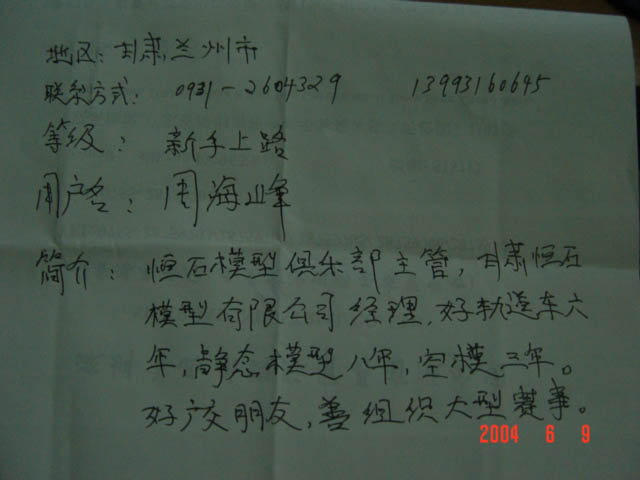 地区：甘肃兰州市
联系方式：0931-2604329 13993160645
等级：新手上路
用户名：周海峰
简介：恒石模型俱乐部主管，甘肃恒石
模型有限公司经理，好轨道车六
年，静态模型八年，空模三年。
好广交朋友，善组织大型赛事。
2004 6 9